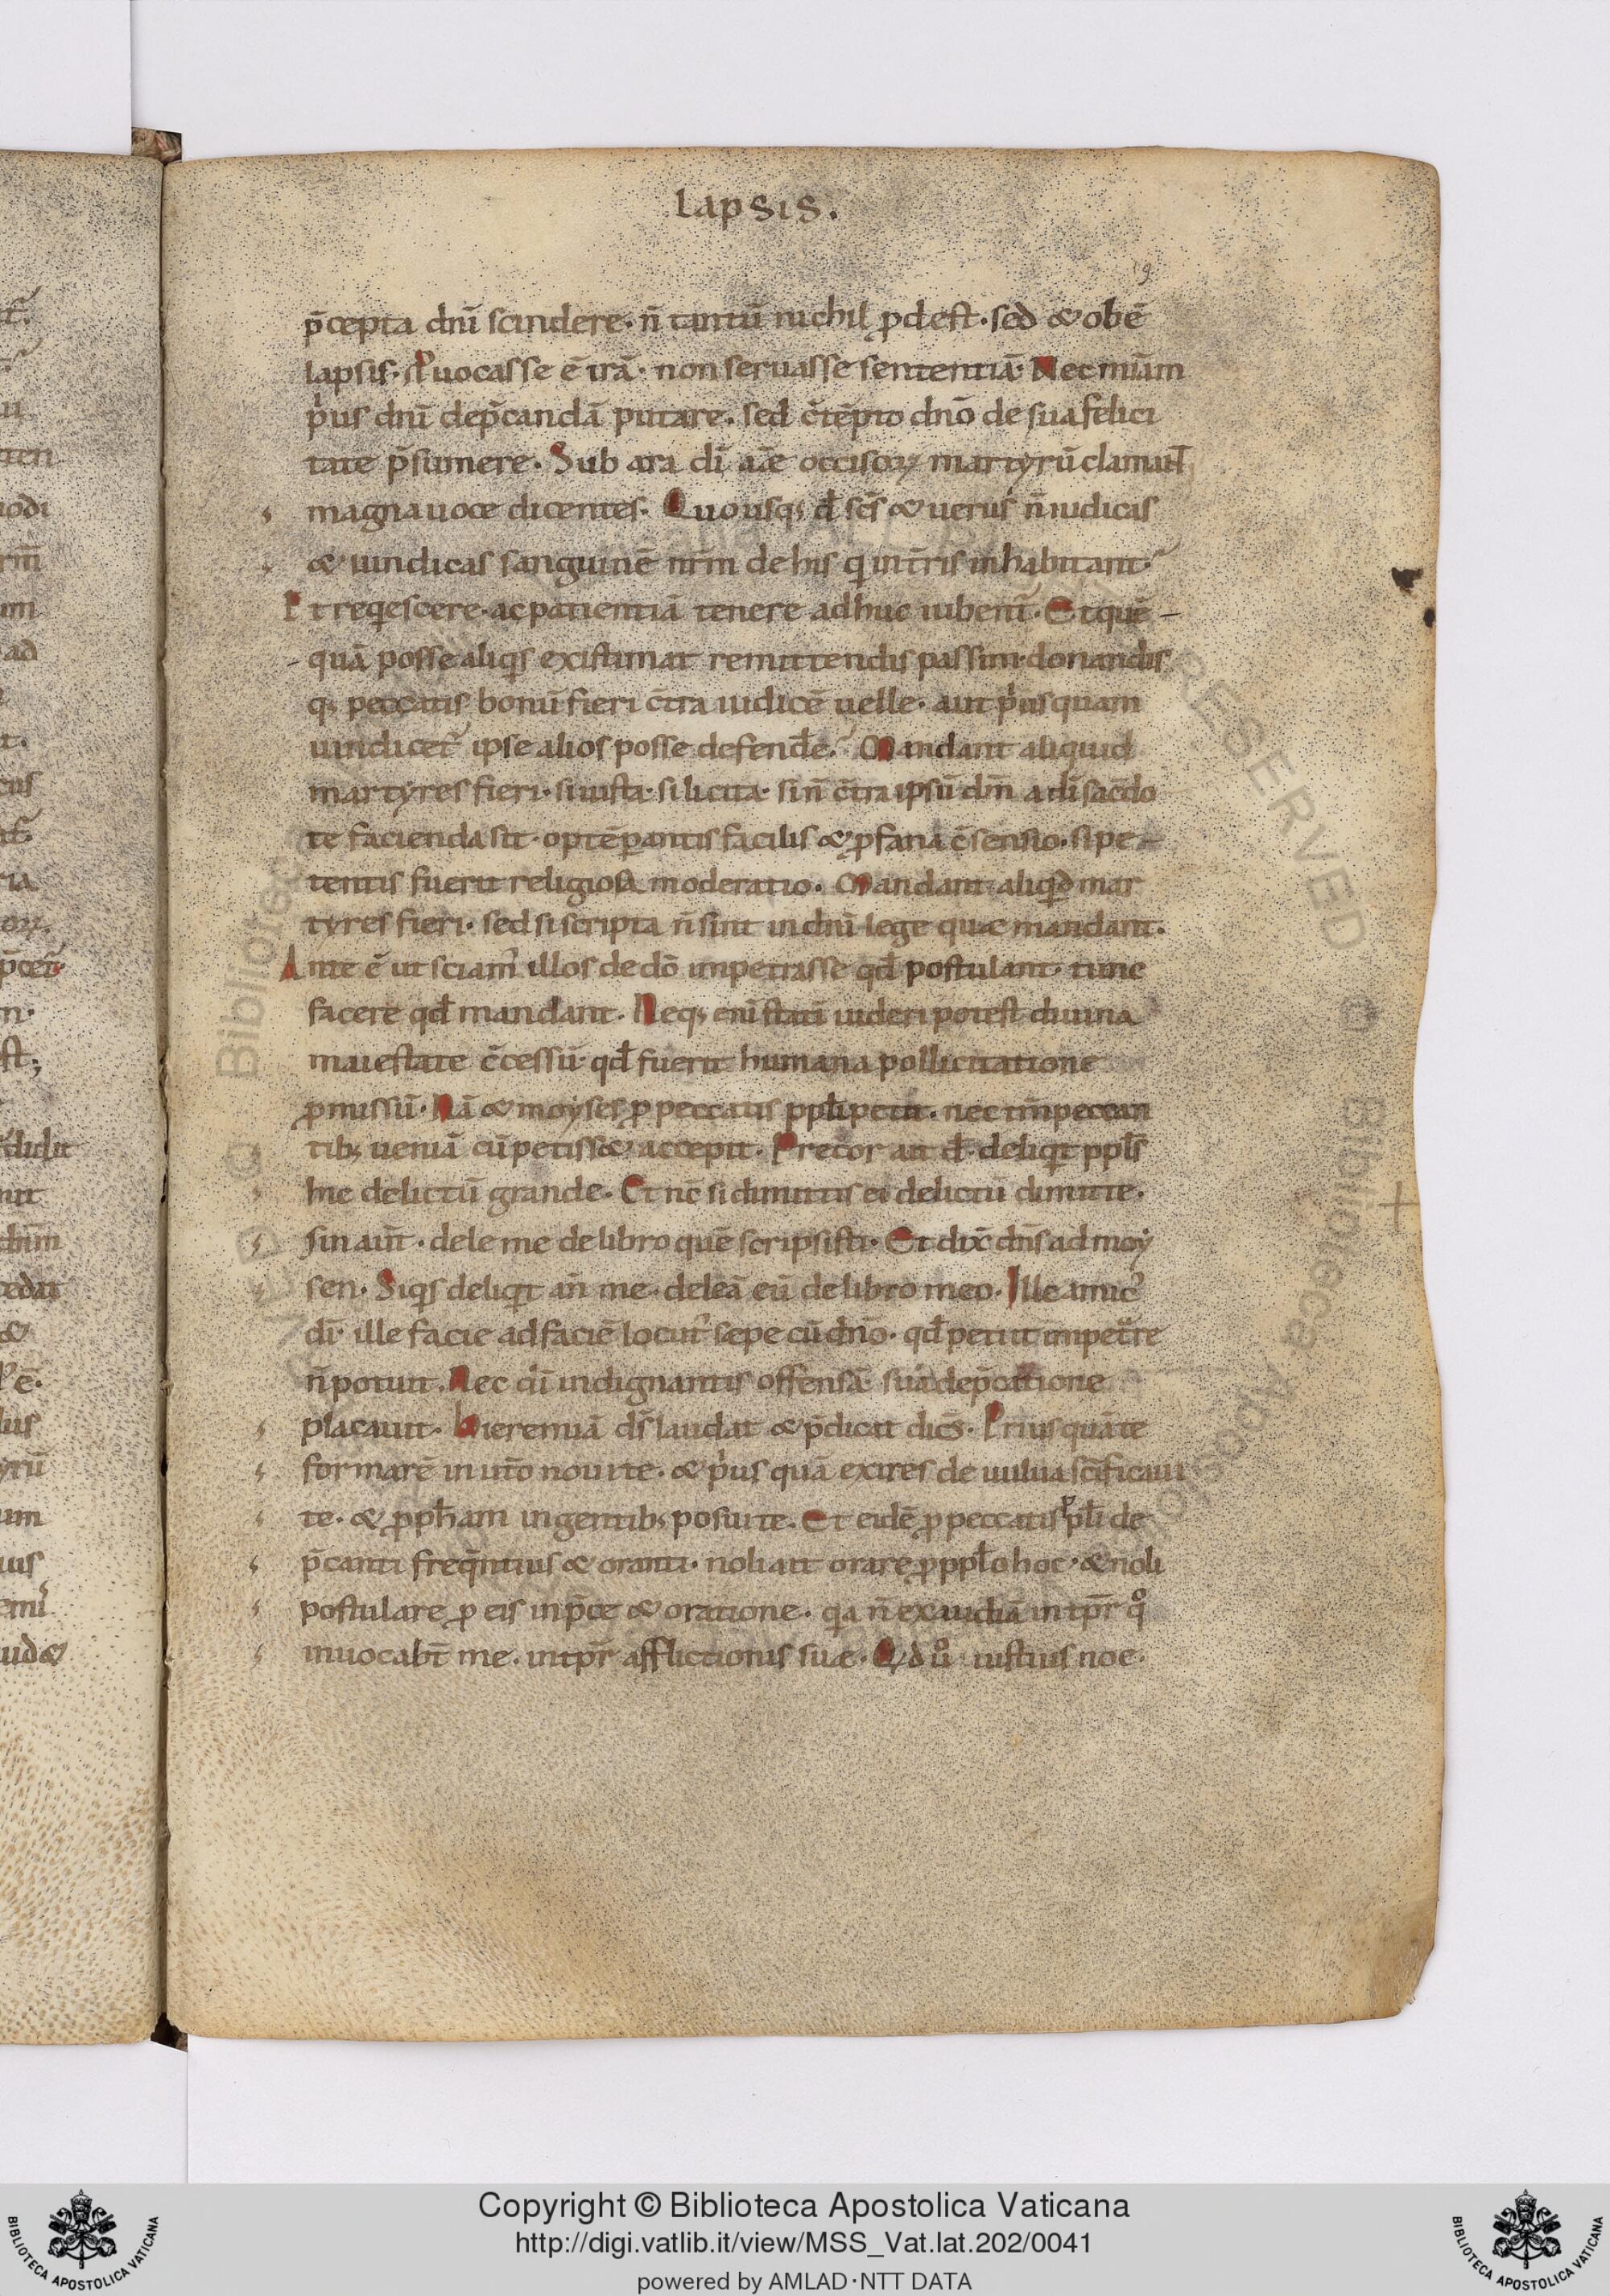 lapsis.
19
p̄cepta dnī scindere· n̄ tantū nichil ꝓdest· sed & obē
lapsis· ꝓuocasse ē irā· non seruasse sententiā· Nec miām
pͥus dnī dep̄candā putare· sed c̄tēpto dnō de sua felici
tate p̄sumere· Sub ara dī aīe occisoꝝ martyrū clamant
magna uoce dicentes· Quousq; d̄s sc̄s & uerus n̄ iudicas
& uindicas sanguinē nr̄m de his qͥ in tr̄is inhabitant·
Et reqͥescere· ac patientiā tenere adhuc iubentͬ· Et quē-
-quā posse aliqͥs existimat remittendis passim· donandis
q; peccatis bonū fieri c̄tra iudicē uelle· aut pͥusquam
uindicetͬ ipse alios posse defendē. Mandant aliquid
martyres fieri· si iusta· si licita· si n̄ c̄tra ipsū dm̄ a dī sac̄do
te facienda sit· optēꝑantis facilis & ꝓfana c̄sensio· si pe
tentis fuerit religiosa moderatio. Mandant aliqͥd mar
tyres fieri· sed si scripta n̄ sint in dnī lege quæ mandant.
Ante ē ut sciamͬ illos de dō impetrasse qd̄ postulant· tunc
facere qd̄ mandant. Neq; eni statī uideri potest diuina
maiestate c̄cessū· qd̄ fuerit humana pollicitatione
ꝓmissū. Nā & moyses ꝓ peccatis ppl̄i petit. nec tm̄ peccan
tib; ueniā cū petiss& accepit. Precor ait d̄s· deliqͥt ppl̄s
hic delictū grande. Et nc̄ si dimittis ei delictū dimitte.
sin aūt· dele me de libro quē scripsisti· Et dix̄ dn̄s ad moy
sen. Siqͥs deliqͥt an̄ me· deleā eū de libro meo. Ille amicͬ
dī· ille facie ad faciē locutͬ sæpe cū dnō· qd̄ petiit impetͬre
n̄ potuit. Nec dī indignantis offensā· sua dep̄catione
placauit. Hieremiā d̄s laudat & p̄dicat dic̄s. Priusquā te
formarē in utō noui te. & pͥus quā exires de uulua sc̄ificaui
te. & ꝓpħam in gentib; posui te. Et eidē ꝓ peccatis ppl̄i de
p̄canti freq̄ntius & oranti. noli ait orare ꝓ ppl̄o hoc. & noli
postulare ꝓ eis in p̄ce & oratione. qͥa n̄ exaudiā in tpr̄ qͦ
inuocabt̄ me. in tpr̄ afflictionis suæ. Qͥd uͦ iustius noe.
Copyright © Biblioteca Apostolica Vaticana
http://digi.vatlib.it/view/MSS_Vat.lat.202/0041
powered by AMLAD·NTT DATA
BIBLIOTECA APOSTOLICA VATICANA
BIBLIOTECA APOSTOLICA VATICANA